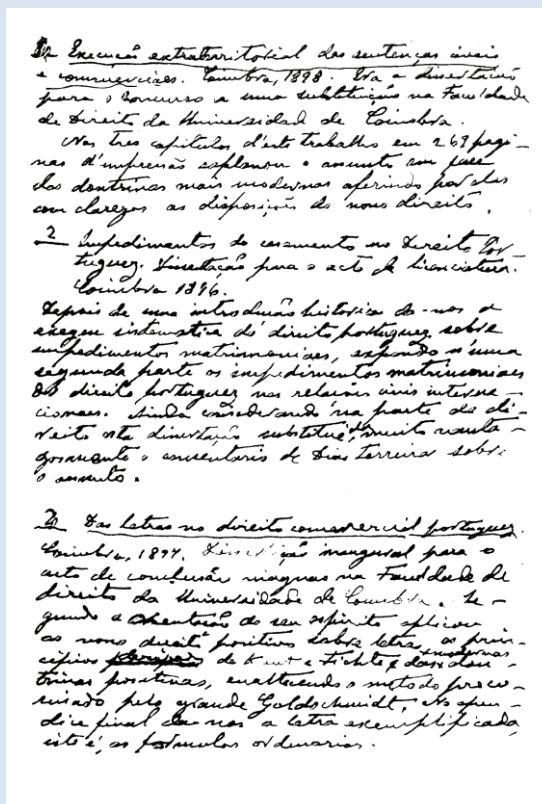 1. Execução extraterritorial das sentenças civeis
e commerciaes. Coimbra, 1898. Era a dissertação
para o concurso a uma substituição na Faculdade
de Direito da Universidade de Coimbra.
Nos tres capitulos d'este trabalho em 269 pagi-
nas d'impressão explanou o assunto em face
das doutrinas mais modernas aferindo por elas
com clareza as disposições do nosso direito.
2 Impedimentos do casamento no Direito Por-
tuguez. Dissertação para o acto de licenciatura.
Coimbra 1896.
Depois de uma introdução historica dá-nos a
exegese sistematica do direito portuguez sobre
impedimentos matrimoniaes, expondo n'uma
segunda parte os impedimentos matrimoniaes
do direito portuguez nas relações civis interna-
cionaes. Ainda considerando na parte de di-
reito esta dissertação substitue muito vanta-
josamente o comentario de Dias Ferreira sobre
o assunto.
3 Das Letras no direito commercial portuguez.
Coimbra, 1897. Dissertação inaugural para o
acto de conclusões magnas na Faculdade de
direito da Universidade de Coimbra. Se-
gundo a orientação do seu espirito aplicou
ao nosso direito positivo sobre letras, os prin-
cipios de Kunt e Fichte e das modernas dou-
trinas positivas, enaltecendo o metodo preco-
nisado pelo grande Goldschmidt. No apen-
dice final dá-nos a letra exemplificada,
isto é, as formulas ordinarias.